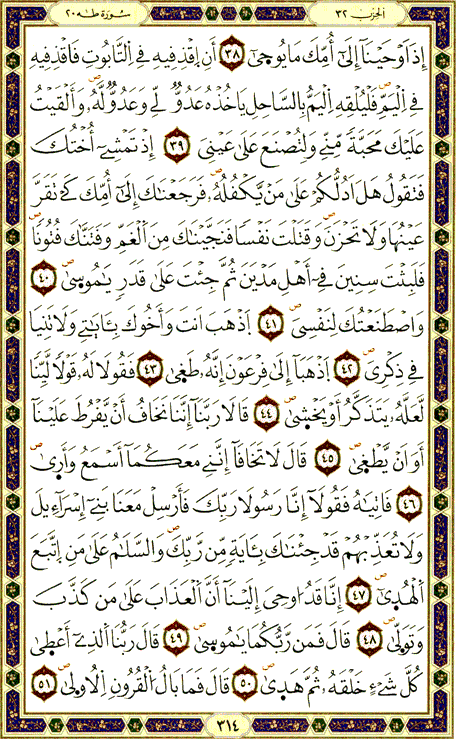 الحزب ٣٢
سُورَة طه ٢٠
إِذَ اَوْحَيْنَآ إِلَىٰٓ أُمِّكَ مَا يُوحَىٰٓ ٣٨ أَنِ اِقْذِفِيهِ فِے اِلتَّابُوتِ فَاقْذِفِيهِ
فِے اِلْيَمِّ فَلْيُلْقِهِ اِلْيَمُّ بِالسَّاحِلِ يَاخُذْهُ عَدُوٌّ لِّے وَعَدُوٌّ لَّهُۥ وَأَلْقَيْتُ
عَلَيْكَ مَحَبَّةً مِّنِّے وَلِتُصْنَعَ عَلَىٰ عَيْنِيَ ٣٩ إِذْ تَمْشِےٓ أُخْتُكَ
فَتَقُولُ هَلَ اَدُلُّكُمْ عَلَىٰ مَنْ يَّكْفُلُهُۥ فَرَجَعْنَٰكَ إِلَىٰٓ أُمِّكَ كَےْ تَقَرَّ
عَيْنُهَا وَلَا تَحْزَنَ وَقَتَلْتَ نَفْساً فَنَجَّيْنَٰكَ مِنَ اَلْغَمِّ وَفَتَنَّٰكَ فُتُوناً
فَلَبِثْتَ سِنِينَ فِےٓ أَهْلِ مَدْيَنَ ثُمَّ جِئْتَ عَلَىٰ قَدَرٍ يَٰمُوسَىٰ ٤٠
وَاصْطَنَعْتُكَ لِنَفْسِيَ ٤١ اَذْهَبَ اَنتَ وَأَخُوكَ بِـَٔايَٰتِے وَلَا تَنِيَا
فِے ذِكْرِيَ ٤٢ اَذْهَبَآ إِلَىٰ فِرْعَوْنَ إِنَّهُۥ طَغَىٰ ٤٣ فَقُولَا لَهُۥ قَوْلاً لَّيِّناً
لَّعَلَّهُۥ يَتَذَكَّرُ أَوْ يَخْشَىٰ ٤٤ قَالَا رَبَّنَآ إِنَّنَا نَخَافُ أَنْ يَّفْرُطَ عَلَيْنَآ
أَوَ اَنْ يَّطْغَىٰ ٤٥ قَالَ لَا تَخَافَآ إِنَّنِے مَعَكُمَآ أَسْمَعُ وَأَرَىٰ
٤٦ فَاتِيَٰهُ فَقُولَآ إِنَّا رَسُولَا رَبِّكَ فَأَرْسِلْ مَعَنَا بَنِےٓ إِسْرَآءِيلَ
وَلَا تُعَذِّبْهُمْ قَدْ جِئْنَٰكَ بِـَٔايَةٍ مِّن رَّبِّكَ وَالسَّلَٰمُ عَلَىٰ مَنِ اِتَّبَعَ
اَلْهُدَىٰٓ ٤٧ إِنَّا قَدُ اُوحِيَ إِلَيْنَآ أَنَّ اَلْعَذَابَ عَلَىٰ مَن كَذَّبَ
وَتَوَلَّىٰ ٤٨ قَالَ فَمَن رَّبُّكُمَا يَٰمُوسَىٰ ٤٩ قَالَ رَبُّنَا اَلذِےٓ أَعْطَىٰ
كُلَّ شَےْءٍ خَلْقَهُۥ ثُمَّ هَدَىٰ ٥٠ قَالَ فَمَا بَالُ اُلْقُرُونِ اِلُاولَىٰ ٥١
٣١٤